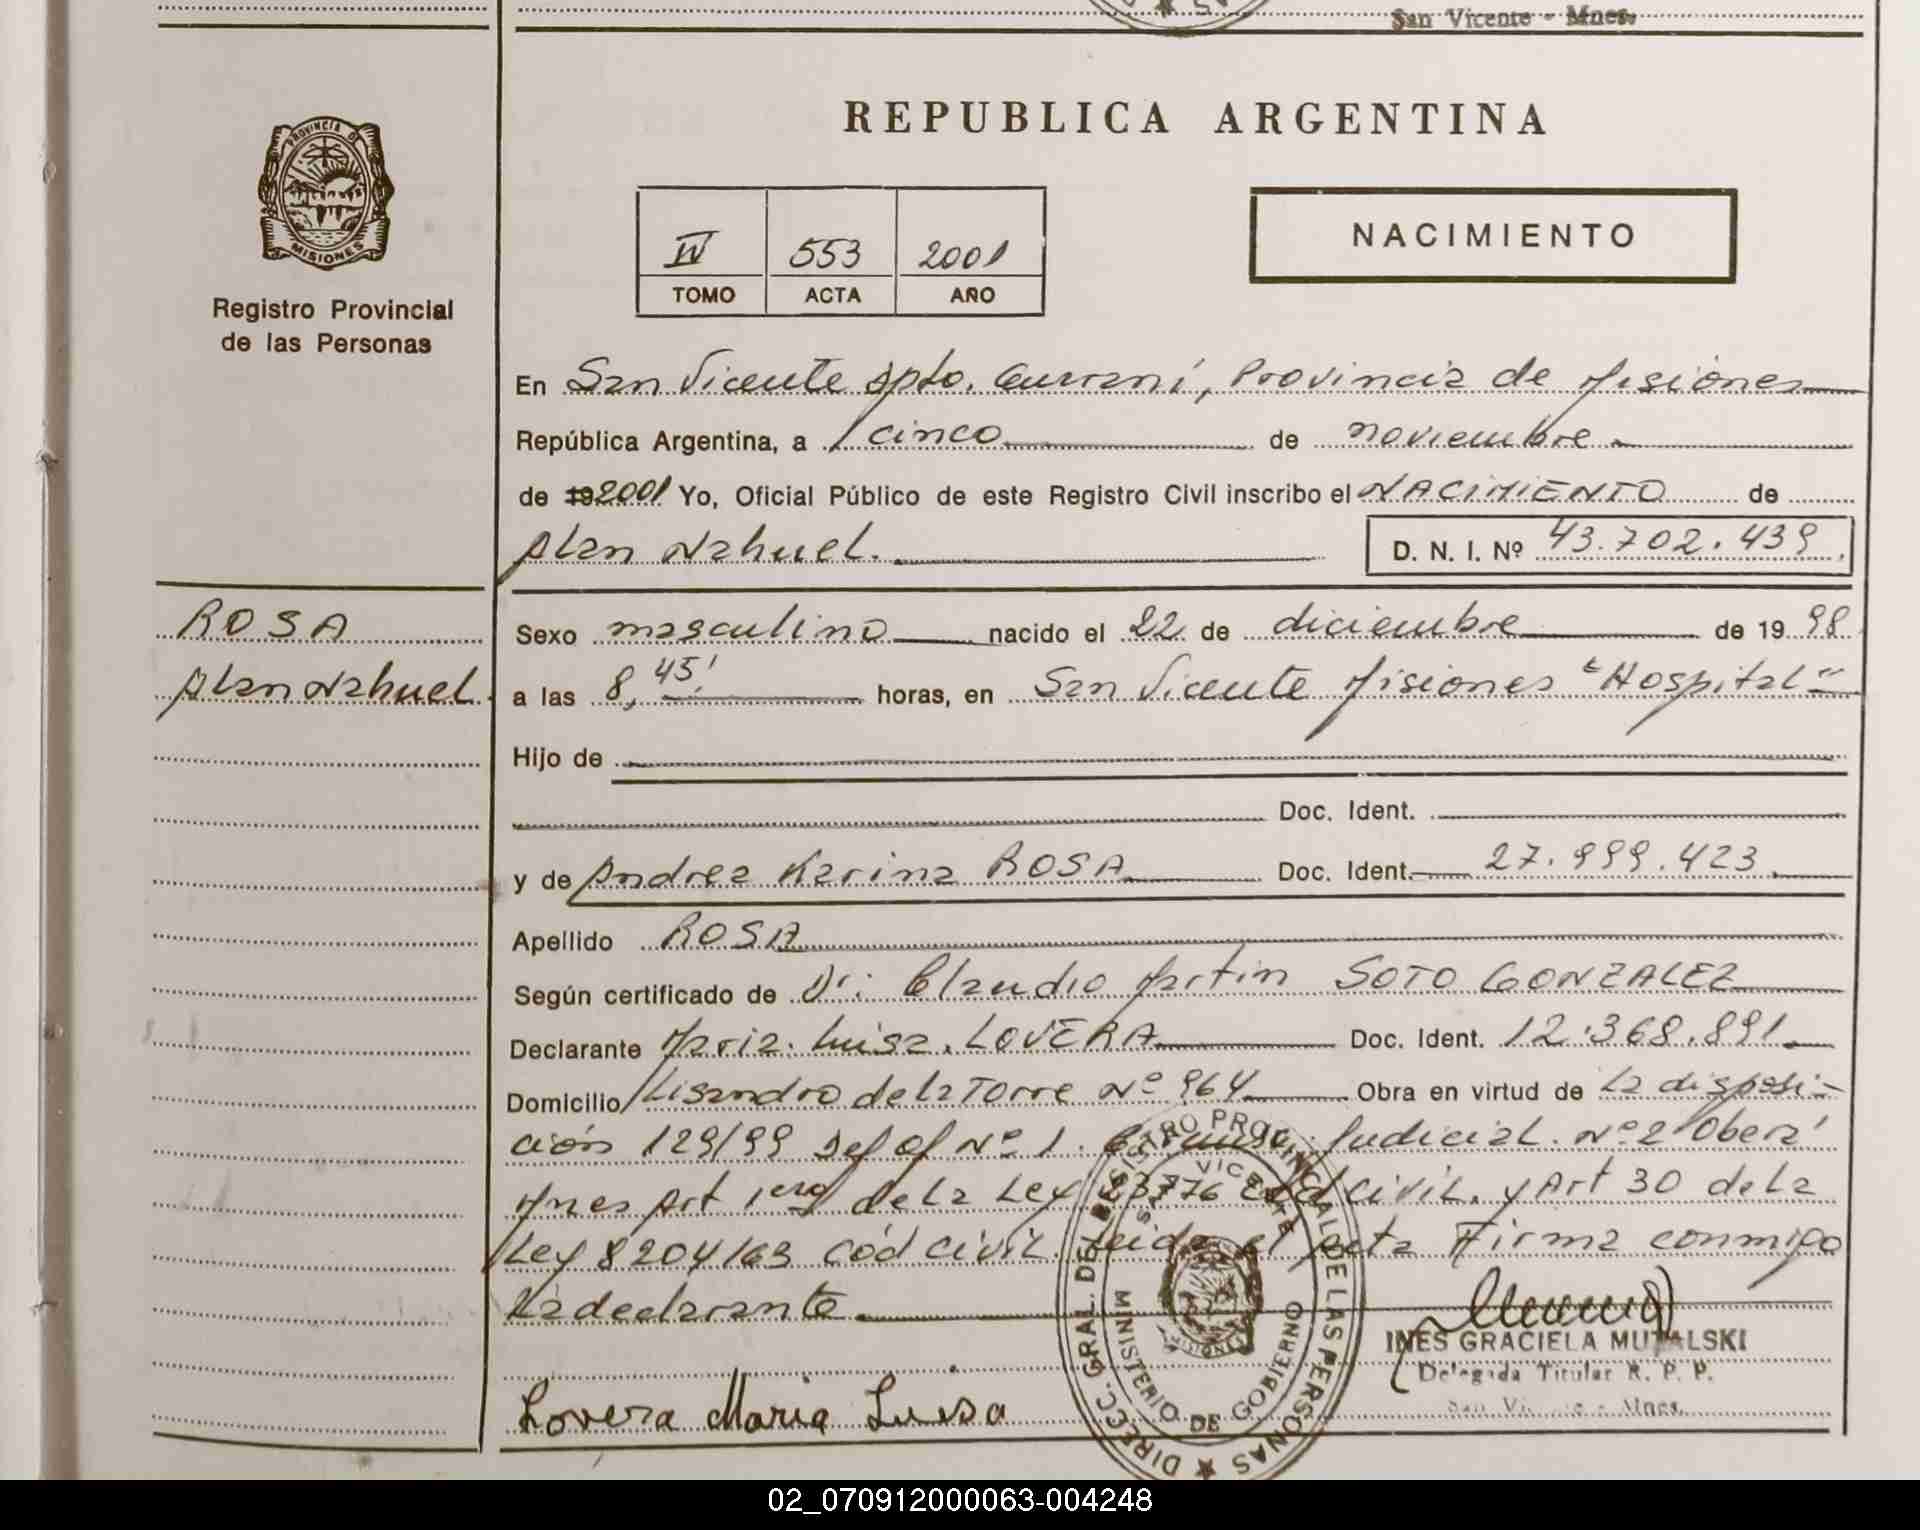 San Vicente - Mnes.
REPUBLICA ARGENTINA
PROVINCIA DE
MISIONES
Registro Provincial
de las Personas
IV 553 2001
TOMO ACTA AÑO
NACIMIENTO
En San Vicente Dpto. Guaraní, Provincia de Misiones
República Argentina, a cinco de noviembre
de 19 2001 Yo, Oficial Público de este Registro Civil inscribo el NACIMIENTO de
Alan Nahuel. D. N. I. Nº 43.702.439
ROSA
Alan Nahuel.
Sexo masculino nacido el 22 de diciembre de 19 98
a las 8,45' horas, en San Vicente Misiones "Hospital"
Hijo de
Doc. Ident.
y de Andrea Karina ROSA Doc. Ident. 27.999.423
Apellido ROSA
Según certificado de Dr: Claudio Martin SOTO GONZALEZ
Declarante Maria Luisa LOVERA Doc. Ident. 12.368.891
Domicilio Lisandro de la Torre Nº 964 Obra en virtud de la disposi-
ción 129/99 Def of Nº 1. Judicial Nº 2 Oberá
Mnes Art 1ero de la Ley 23776 Cód civil. y Art 30 de la
Ley 8204/63 Cód civil. Leida el acta Firma conmigo
la declarante
Lovera Maria Luisa
DIREC. GRAL. DEL REGISTRO PROVINCIAL DE LAS PERSONAS
SAN VICENTE
MINISTERIO DE GOBIERNO
INES GRACIELA MUZALSKI
Delegada Titular R. P. P.
San Vicente - Mnes.
02_070912000063-004248